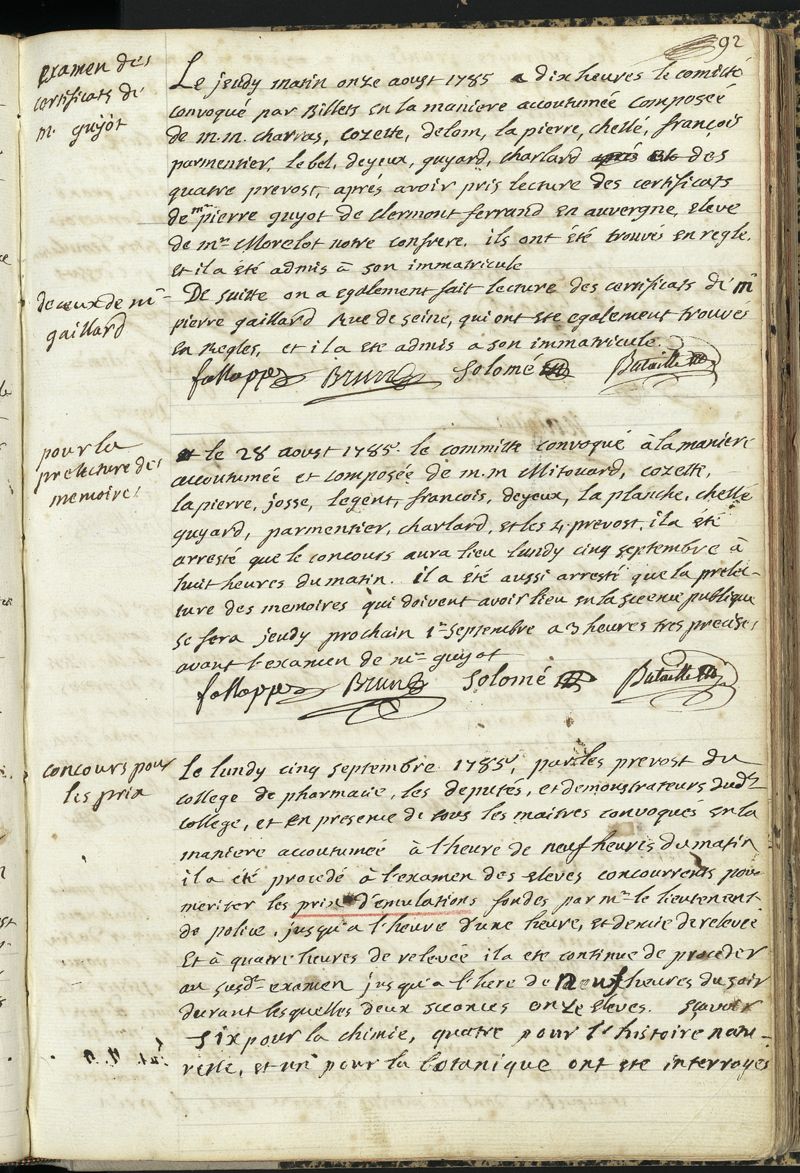 92
examen des
certificats de
m. guyot
Le jeudy matin onze aoust 1785 a dix heures le comitté
convoqué par Billets en la maniere accoutumée composée
de m.m. charras, cozette, delom, la pierre, chellé, françois
parmentier, lebel, deyeux, guyard, charlard des
quatre prevost, aprés avoir pris lecture des certificats
de mr pierre guyot de clermont ferrand en auvergne, eleve
de mr Morelot notre confrere. ils ont été trouvés en regle.
et il a été admis à son immatricule
de ceux de mr
gaillard
De suitte on a egalement fait lecture des certificats de mr
pierre gaillard Rue de seine, qui ont ete egalement trouvés
en Regles, et il a ete admis a son immatricule.
fallopp Brun Solomé Bataille
pour la
prelecture des
memoires
et le 28 aoust 1785. le committe convoqué à la maniere
accoutumée et composée de m.m Mitouard, cozette,
la pierre, josse, legent, françois, deyeux, la planche, chellé
guyard, parmentier, charlard, et les 4. prevost, il a été
arresté que le concours aura lieu lundy cinq septembre à
huit heures du matin. il a été aussi arresté que la prelec-
ture des memoires qui doivent avoir lieu en la sceence publique
se fera jeudy prochain 1er septembre a 3 heures tres precises
avant l'examen de mr guyot
fallopp Brun Solomé Bataille
concours pour
les prix
Le lundy cinq septembre 1785, par les prevost du
college de pharmacie, les deputés, et demonstrateurs dudt
college, et en presence de tous les maitres convoqués en la
maniere accoutumée à l'heure de neuf heures du matin
il a été procedé à l'examen des eleves concurrents pour
meriter les prix d'emulations fondes par mr le lieutenent
de police, jusqu'a l'heure d'une heure, et demie de relevée
Et à quatre heures de relevée il a ete continué de proceder
au susdt examen jusqu'a l'here de neuf heures du soir
durant lesquelles deux sceances onze eleves. scavoir
six pour la chimie, quatre pour l'histoire natu-
relle, et un pour la botanique ont ete interroyés